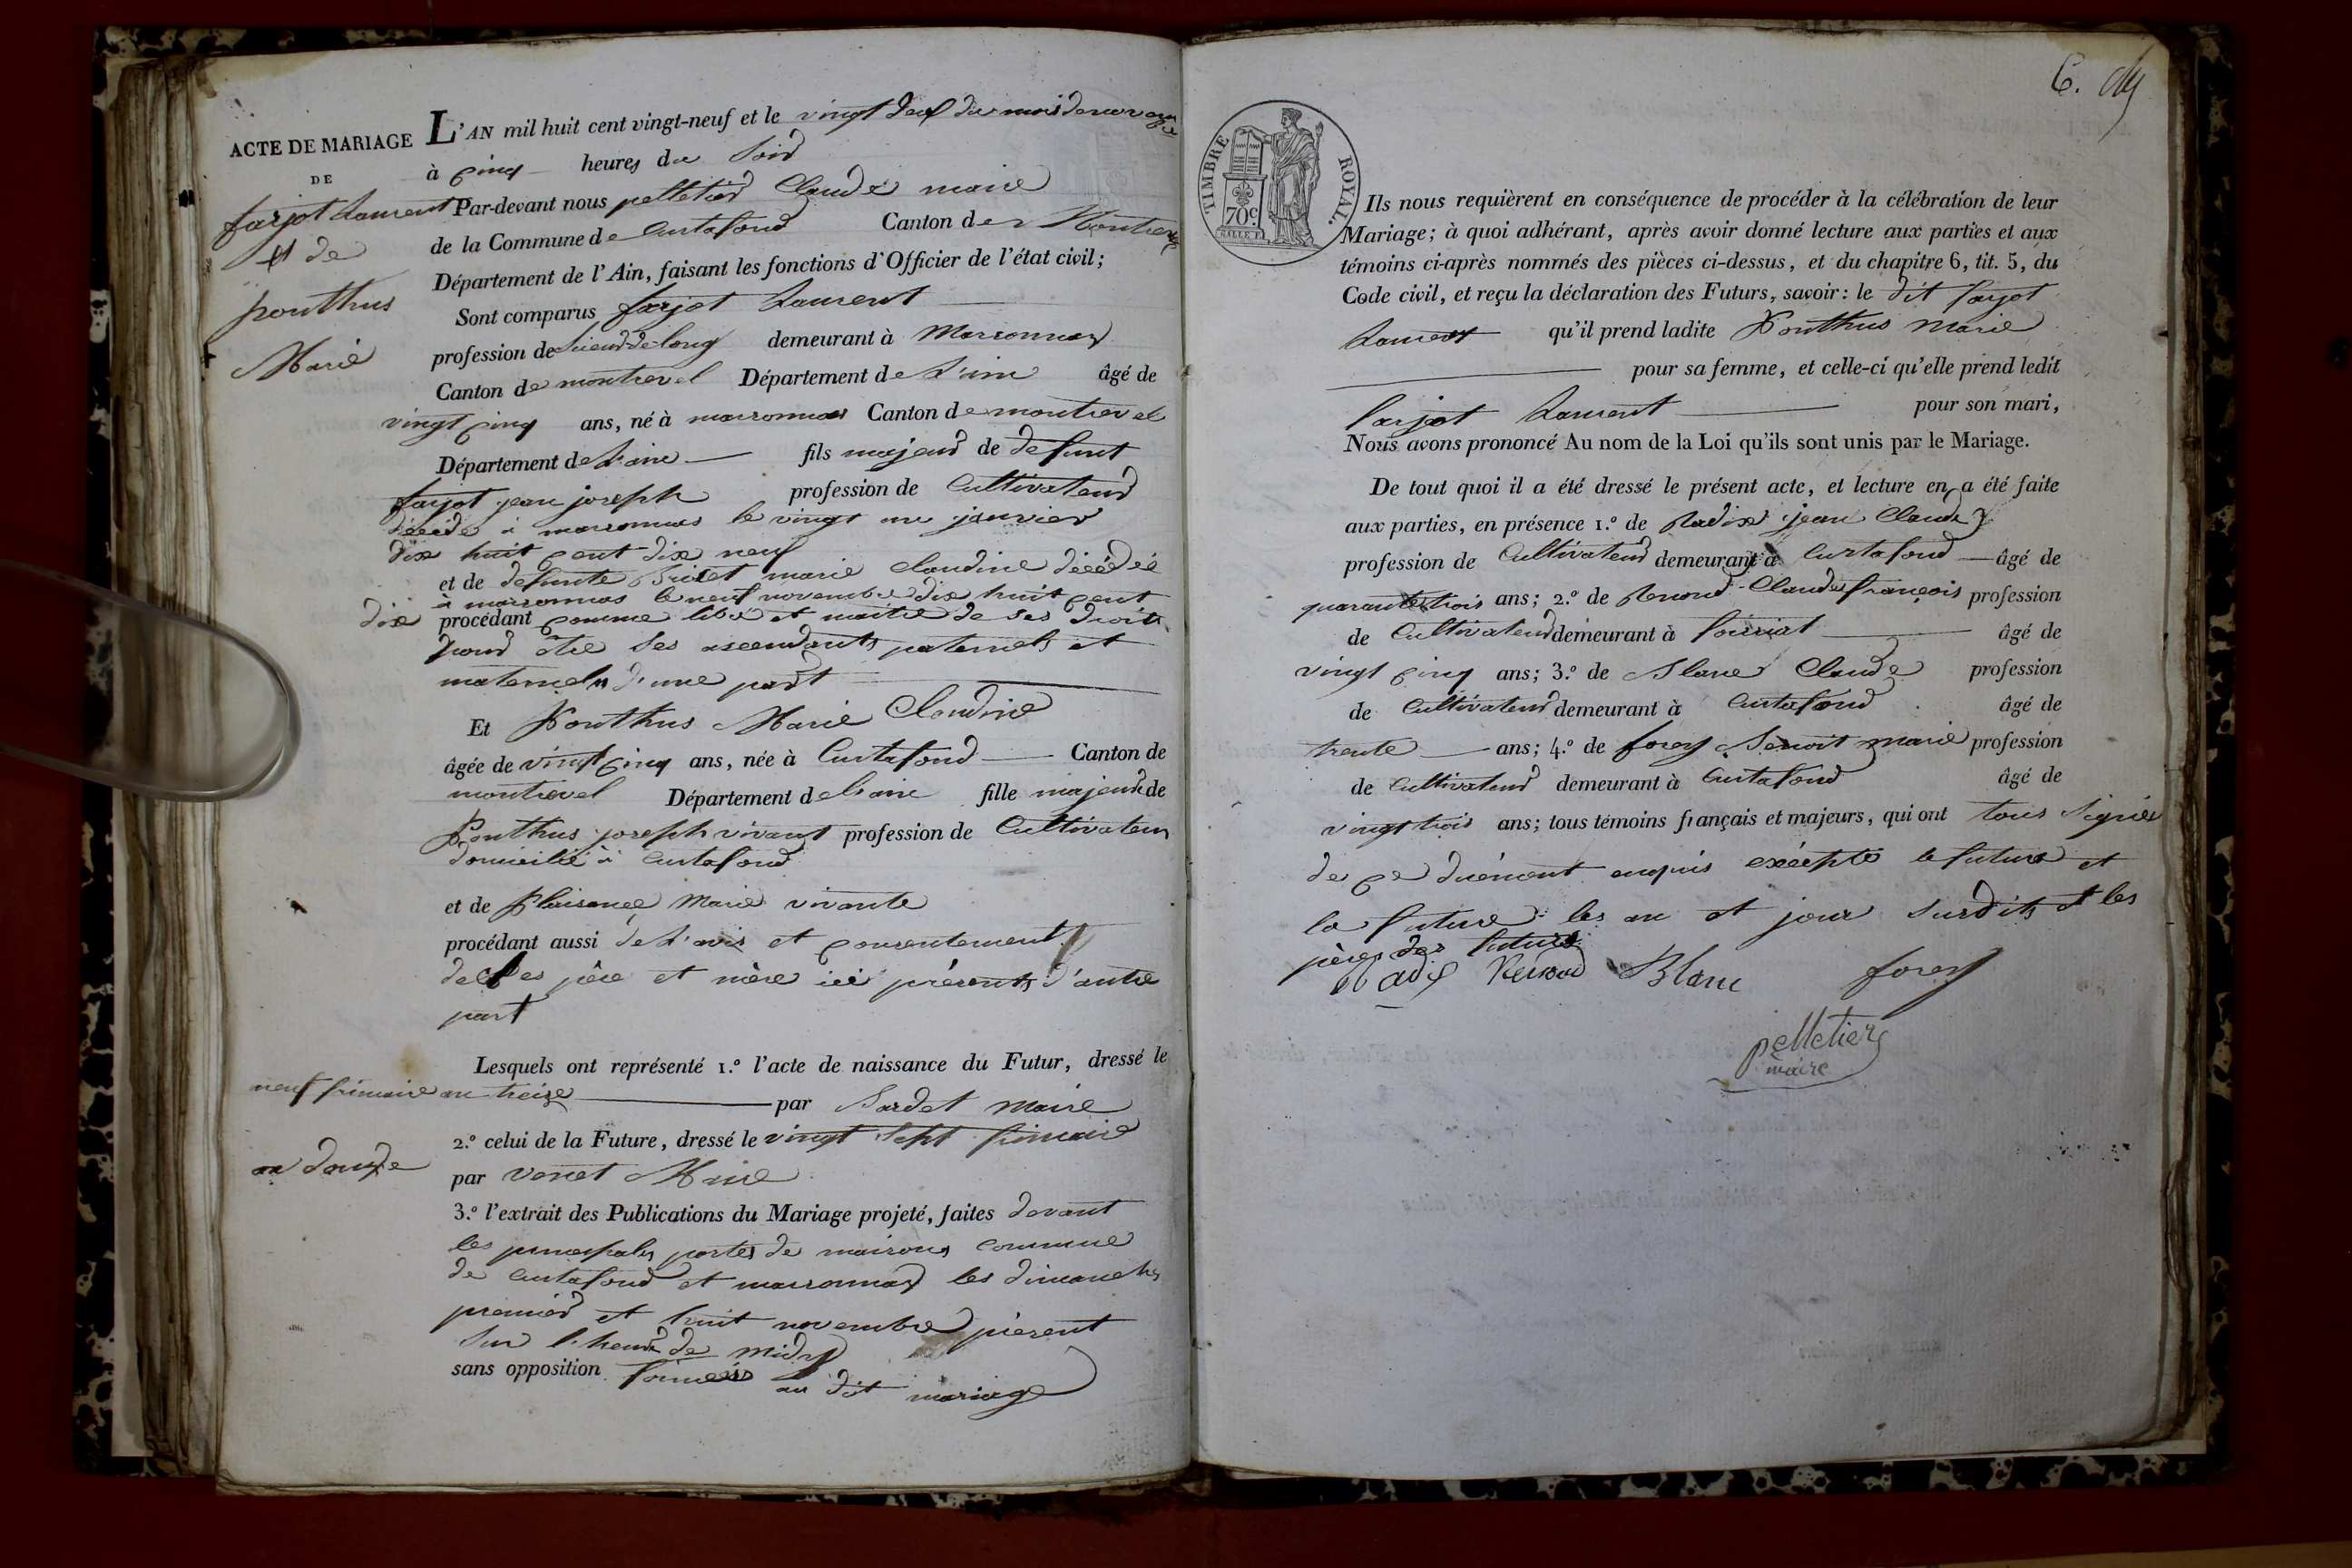 ACTE DE MARIAGE
DE
farjot Laurent
et de
ponthus
Marie
L'AN mil huit cent vingt-neuf et le vingt deux du mois de novembre
à cinq heures du Soir
Par-devant nous pelletier Claude maire
de la Commune de Curtafond Canton de Montrevel
Département de l'Ain, faisant les fonctions d'Officier de l'état civil;
Sont comparus farjot Laurent
profession de Scieur de long demeurant à Marsonnas
Canton de montrevel Département de L'ain âgé de
vingt cinq ans, né à marsonnas Canton de montrevel
Département de L'ain fils majeur de defunt
farjot jean joseph profession de Cultivateur
décédé à marsonnas le vingt un janvier
dix huit cent dix neuf
et de defunte marie claudine décédée
à marsonnas le neuf novembre dix huit cent
dix procédant comme libre et maitre de ses droits
ses ascendants paternels et
maternels d'une part
Et Ponthus Marie Claudine
âgée de vingt cinq ans, née à Curtafond Canton de
montrevel Département de L'ain fille majeure de
Ponthus joseph vivant profession de Cultivateur
domicilié à Curtafond
et de Plaisance Marie vivante
procédant aussi de L'avis et consentement
de ses père et mère ici présents d'autre
part
Lesquels ont représenté 1.º l'acte de naissance du Futur, dressé le
neuf frimaire an treize par Sardet Maire
2.º celui de la Future, dressé le vingt sept frimaire
an douze
par Venet Maire
3.º l'extrait des Publications du Mariage projeté, faites devant
les principales portes de maisons commune
de Curtafond et marsonnas les dimanches
premier et huit novembre présent
Sur l'heure de midy
sans opposition formée au dit mariage
6.
TIMBRE ROYAL.
70c
Ils nous requièrent en conséquence de procéder à la célébration de leur
Mariage; à quoi adhérant, après avoir donné lecture aux parties et aux
témoins ci-après nommés des pièces ci-dessus, et du chapitre 6, tit. 5, du
Code civil, et reçu la déclaration des Futurs, savoir: le dit farjot
Laurent qu'il prend ladite Ponthus Marie
pour sa femme, et celle-ci qu'elle prend ledit
farjot Laurent pour son mari,
Nous avons prononcé Au nom de la Loi qu'ils sont unis par le Mariage.
De tout quoi il a été dressé le présent acte, et lecture en a été faite
aux parties, en présence 1.º de Radix jean Claude
profession de Cultivateur demeurant à Curtafond âgé de
quarante trois ans; 2.º de Renoud Claude françois profession
de Cultivateur demeurant à foissiat âgé de
vingt cinq ans; 3.º de Blanc Claude profession
de Cultivateur demeurant à Curtafond âgé de
trente ans; 4.º de forey Benoit marie profession
de Cultivateur demeurant à Curtafond âgé de
vingt trois ans; tous témoins français et majeurs, qui ont tous signés
de ce duement enquis excepté le futur et
la future les an et jour susdits et les
pères des futurs
Radix Renoud Blanc forey
pelletier
maire